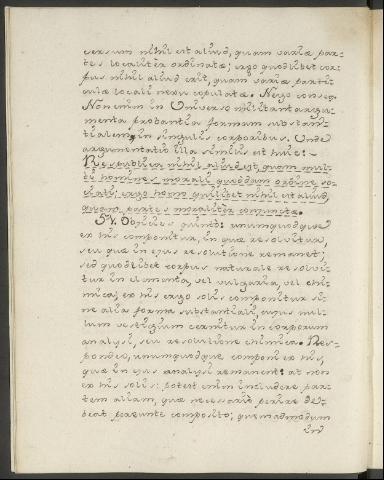 versum nihil est aliud, quam variæ par-
tes localiter ordinatæ; ergo quodlibet cor-
pus nihil aliud erit, quam variæ parti-
culæ locali nexu copulatæ. Nego conseq.
Non enim in Universo militant argu-
menta probantia formam substan-
tialem, in singulis corporibus. Unde
argumentatio illa similis est huic:
Respublica nihil aliud est, quam mul-
ti homines morali quodam ordine so-
ciati; ergo homo quilibet nihil est aliud,
quam partes moraliter conjunctæ.
54 Objicies quinto: unumquodque
ex his componitur, in quæ resolvitur,
seu quæ in ejus resolutione remanent;
sed quodlibet corpus naturale resolvi-
tur in elementa, vel vulgaria, vel chi-
mica; ex his ergo solis componitur si-
ne alia forma substantiali, cujus nul-
lum vestigium cernitur in corporum
analysi, seu resolutione chimica. Res-
pondeo, unumquodque componi ex his,
quæ in ejus analysi remanent: at non
ex his solis: potest enim includere par-
tem aliam, quæ necessario perire de-
beat pereunte composito; quemadmodum